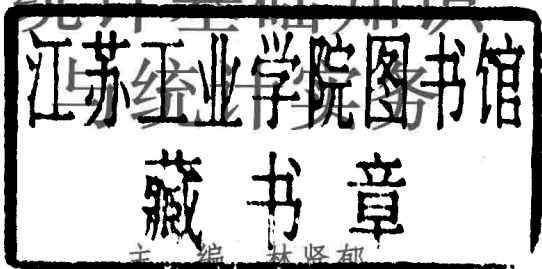 统计基础知识
与统计实务
江苏工业学院图书馆
藏书章
主 编 林贤郁